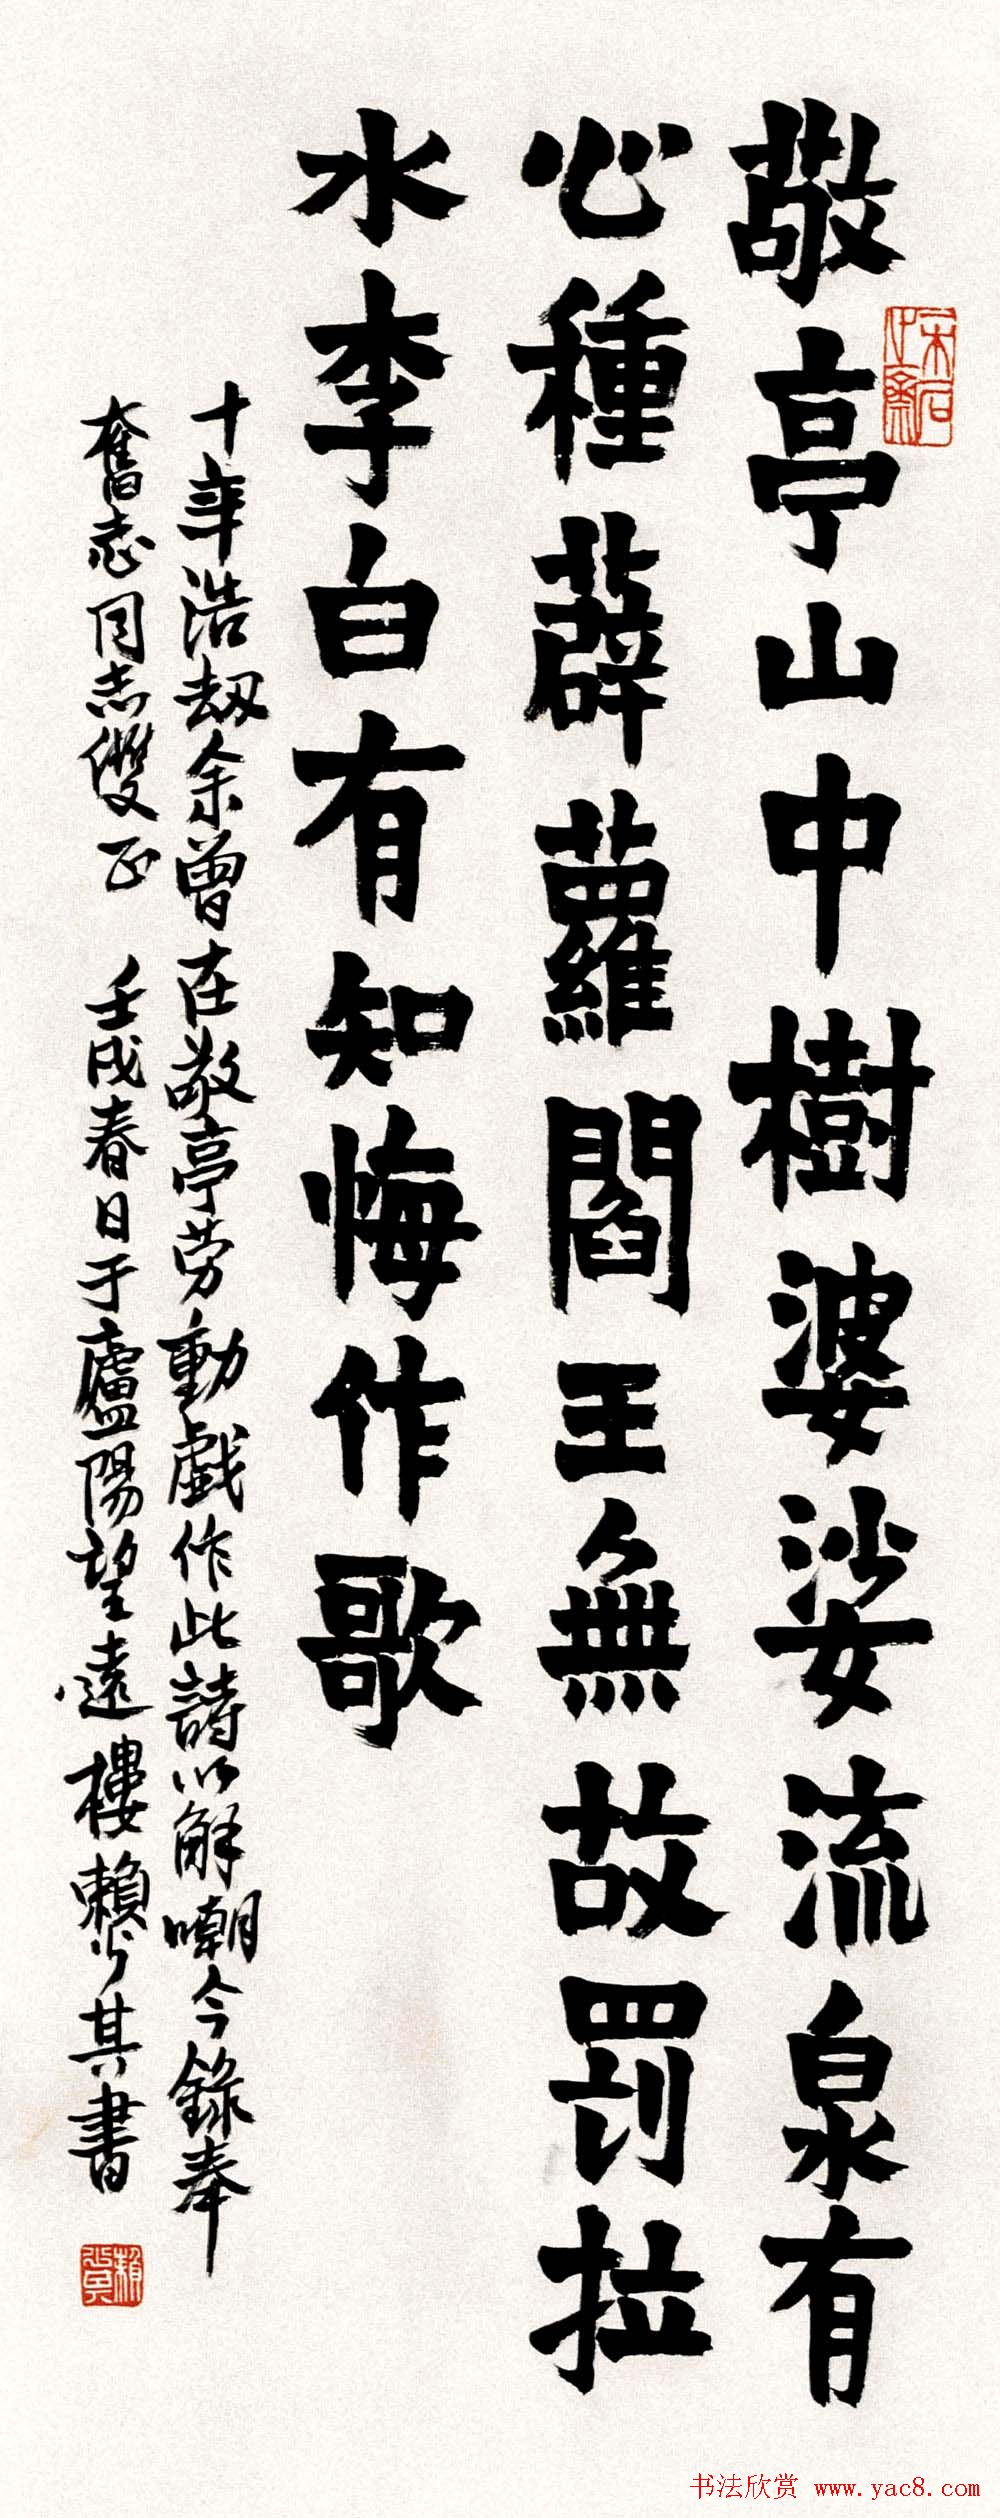 敬亭山中樹婆娑流泉有
心種薜蘿閻王無故罰拉
水李白有知悔作歌
十年浩劫余曾在敬亭劳動戯作此詩以解嘲今錄奉
奮志同志雙正 壬戌春日于廬陽望遠樓賴少其書
书法欣赏 www.yac8.com